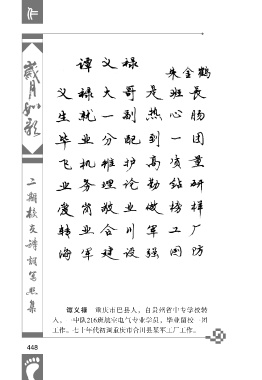 作
岁月如歌
二期校友诗词写照集
谭义禄
朱金鹤
义禄大哥是班长
生就一副热心肠
毕业分配到一团
飞机维护高质量
业务理论勤钻研
爱岗敬业做榜样
转业合川军工厂
海军建设强国防
谭义禄 重庆市巴县人，自贵州省中专学校转
入，一中队216班航空电气专业学员，毕业留校一团
工作。七十年代初调重庆市合川县某军工厂工作。
448